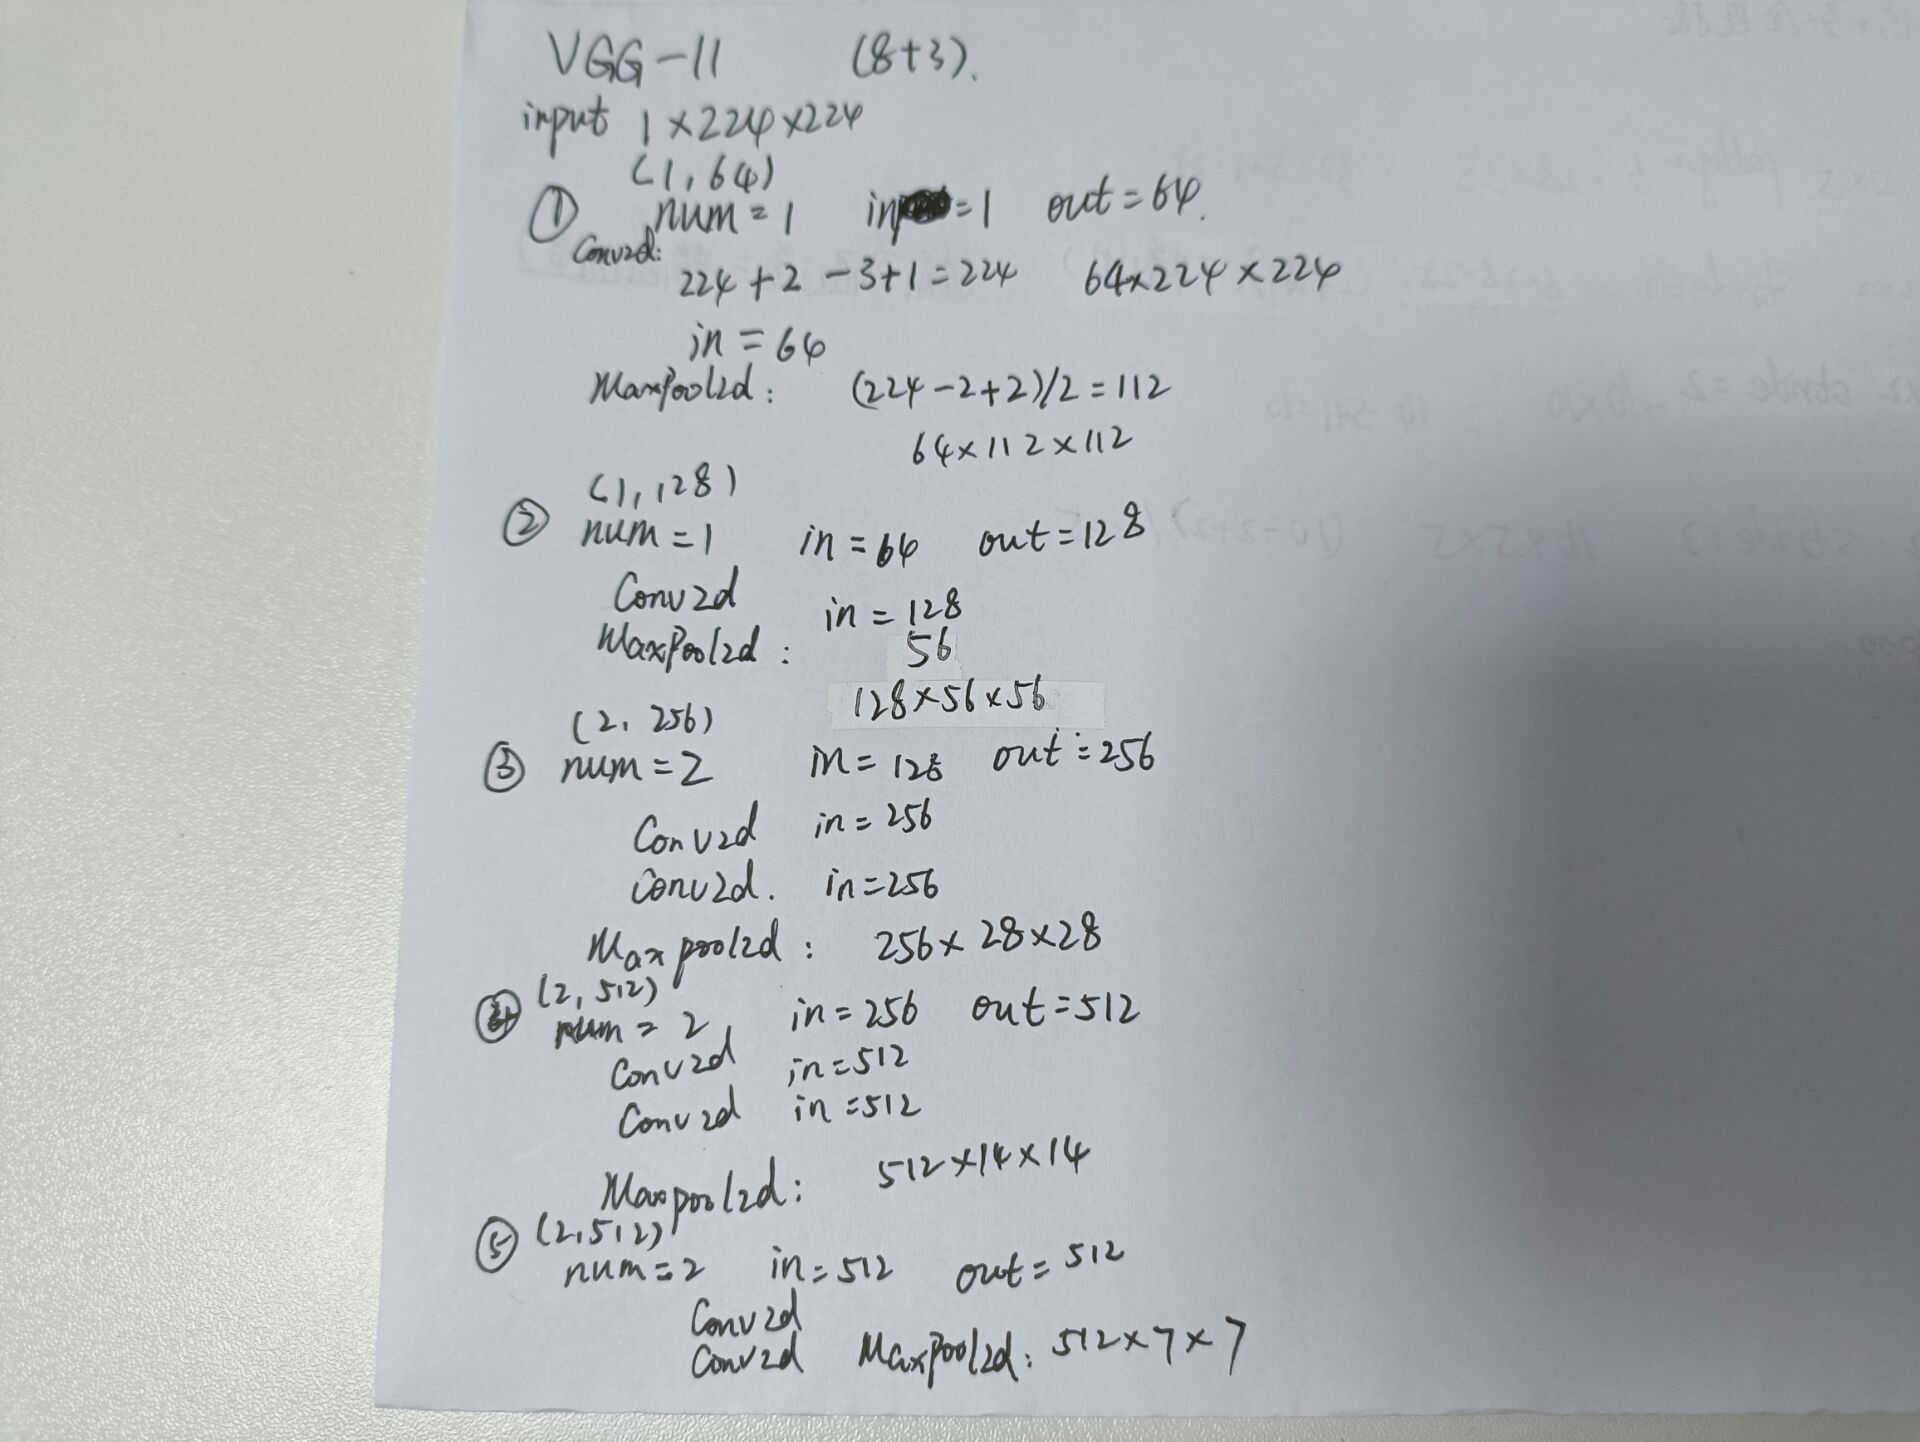 VGG-11 (8+3).
input 1×224×224
(1,64)
① num=1 in=1 out=64.
Conv2d:
224+2-3+1=224 64×224×224
in=64
Maxpool2d: (224-2+2)/2=112
64×112×112
(1,128)
② num=1 in=64 out=128
Conv2d in=128
MaxPool2d: 56
128×56×56
(2,256)
③ num=2 in=128 out=256
Conv2d in=256
Conv2d. in=256
Maxpool2d: 256×28×28
(2,512)
④ num=2 in=256 out=512
Conv2d in=512
Conv2d in=512
Maxpool2d: 512×14×14
⑤ (2,512)
num=2 in=512 out=512
Conv2d
Conv2d MaxPool2d: 512×7×7